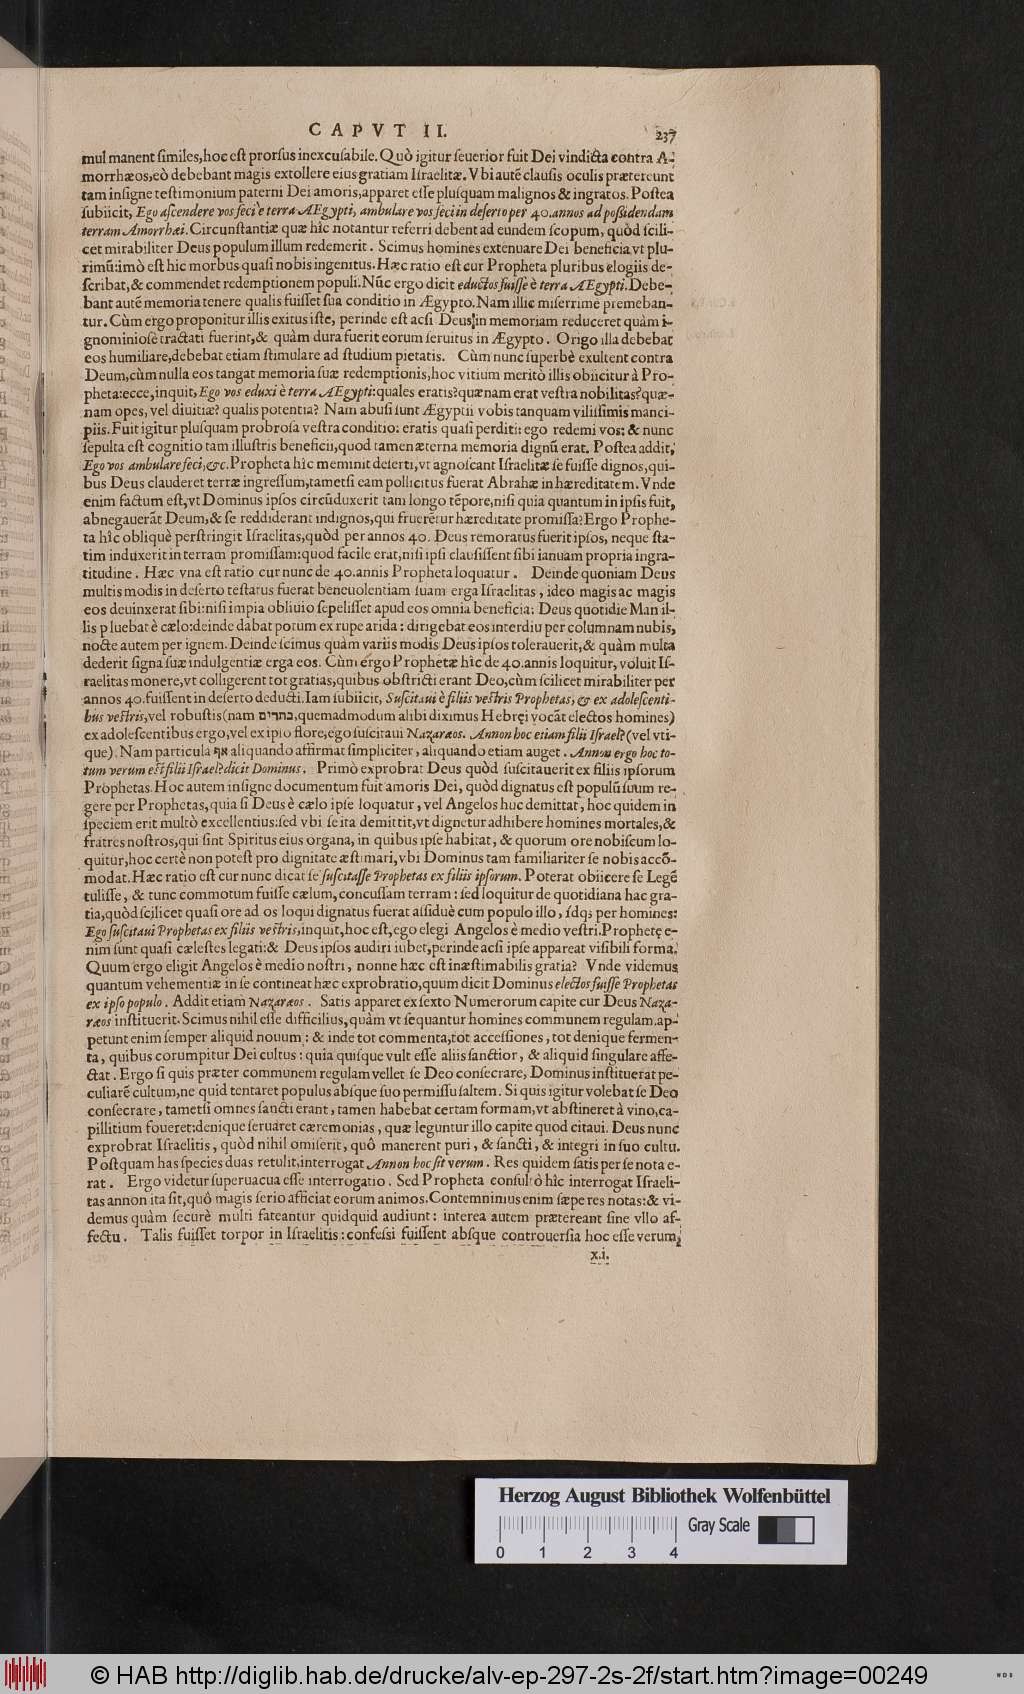 CAPVT II.
237
mul manent ſimiles, hoc eſt prorſus inexcuſabile. Quò igitur ſeuerior fuit Dei vindicta contra A-
morrhæos, eò debebant magis extollere eius gratiam Iſraelitæ. Vbi autẽ clauſis oculis prætereunt
tam inſigne teſtimonium paterni Dei amoris, apparet eſſe pluſquam malignos & ingratos. Poſtea
ſubiicit, Ego aſcendere vos feci è terra AEgypti, ambulare vos feci in deſerto per 40. annos ad poßidendam
terram Amorrhæi. Circunſtantiæ quæ hîc notantur referri debent ad eundem ſcopum, quòd ſcili-
cet mirabiliter Deus populum illum redemerit. Scimus homines extenuare Dei beneficia vt plu-
rimũ: imò eſt hic morbus quaſi nobis ingenitus. Hæc ratio eſt cur Propheta pluribus elogiis de-
ſcribat, & commendet redemptionem populi. Nũc ergo dicit eductos fuiſſe è terra AEgypti. Debe-
bant autẽ memoria tenere qualis fuiſſet ſua conditio in Ægypto. Nam illic miſerrimè premeban-
tur. Cùm ergo proponitur illis exitus iſte, perinde eſt acſi Deus in memoriam reduceret quàm i-
gnominioſè tractati fuerint, & quàm dura fuerit eorum ſeruitus in Ægypto. Origo illa debebat
eos humiliare, debebat etiam ſtimulare ad ſtudium pietatis. Cùm nunc ſuperbè exultent contra
Deum, cùm nulla eos tangat memoria ſuæ redemptionis, hoc vitium meritò illis obiicitur à Pro-
pheta: ecce, inquit, Ego vos eduxi è terra AEgypti: quales eratis? quænam erat veſtra nobilitas? quæ-
nam opes, vel diuitiæ? qualis potentia? Nam abuſi ſunt Ægyptii vobis tanquam viliſſimis manci-
piis. Fuit igitur pluſquam probroſa veſtra conditio: eratis quaſi perditi: ego redemi vos: & nunc
ſepulta eſt cognitio tam illuſtris beneficii, quod tamen æterna memoria dignũ erat. Poſtea addit,
Ego vos ambulare feci, &c. Propheta hîc meminit deſerti, vt agnoſcant Iſraelitæ ſe fuiſſe dignos, qui-
bus Deus clauderet terræ ingreſſum, tametſi eam pollicitus fuerat Abrahæ in hæreditatem. Vnde
enim factum eſt, vt Dominus ipſos circũduxerit tam longo tẽpore, niſi quia quantum in ipſis fuit,
abnegauerãt Deum, & ſe reddiderant indignos, qui fruerẽtur hæreditate promiſſa? Ergo Prophe-
ta hîc obliquè perſtringit Iſraelitas, quòd per annos 40. Deus remoratus fuerit ipſos, neque ſta-
tim induxerit in terram promiſſam: quod facile erat, niſi ipſi clauſiſſent ſibi ianuam propria ingra-
titudine. Hæc vna eſt ratio cur nunc de 40. annis Propheta loquatur. Deinde quoniam Deus
multis modis in deſerto teſtatus fuerat beneuolentiam ſuam erga Iſraelitas, ideo magis ac magis
eos deuinxerat ſibi: niſi impia obliuio ſepeliſſet apud eos omnia beneficia: Deus quotidie Man il-
lis pluebat è cælo: deinde dabat potum ex rupe arida: dirigebat eos interdiu per columnam nubis,
nocte autem per ignem. Deinde ſcimus quàm variis modis Deus ipſos tolerauerit, & quàm multa
dederit ſigna ſuæ indulgentiæ erga eos. Cùm ergo Prophetæ hîc de 40. annis loquitur, voluit Iſ-
raelitas monere, vt colligerent tot gratias, quibus obſtricti erant Deo, cùm ſcilicet mirabiliter per
annos 40. fuiſſent in deſerto deducti. Iam ſubiicit, Suſcitaui è filiis veſtris Prophetas, & ex adoleſcenti-
bus veſtris, vel robuſtis (nam בחרים, quemadmodum alibi diximus Hebręi vocãt electos homines)
ex adoleſcentibus ergo, vel ex ipſo flore, ego ſuſcitaui Nazaræos. Annon hoc etiam filii Iſrael? (vel vti-
que). Nam particula אף aliquando affirmat ſimpliciter, aliquando etiam auget. Annon ergo hoc to-
tum verum eſt filii Iſrael? dicit Dominus. Primò exprobrat Deus quòd ſuſcitauerit ex filiis ipſorum
Prophetas. Hoc autem inſigne documentum fuit amoris Dei, quòd dignatus eſt populũ ſuum re-
gere per Prophetas, quia ſi Deus è cælo ipſe loquatur, vel Angelos huc demittat, hoc quidem in
ſpeciem erit multò excellentius: ſed vbi ſe ita demittit, vt dignetur adhibere homines mortales, &
fratres noſtros, qui ſint Spiritus eius organa, in quibus ipſe habitat, & quorum ore nobiſcum lo-
quitur, hoc certè non poteſt pro dignitate æſtimari, vbi Dominus tam familiariter ſe nobis accõ-
modat. Hæc ratio eſt cur nunc dicat ſe ſuſcitaſſe Prophetas ex filiis ipſorum. Poterat obiicere ſe Legẽ
tuliſſe, & tunc commotum fuiſſe cælum, concuſſam terram: ſed loquitur de quotidiana hac gra-
tia, quòd ſcilicet quaſi ore ad os loqui dignatus fuerat aſſiduè cum populo illo, ſdq; per homines:
Ego ſuſcitaui Prophetas ex filiis veſtris, inquit, hoc eſt, ego elegi Angelos è medio veſtri. Prophetę e-
nim ſunt quaſi cæleſtes legati: & Deus ipſos audiri iubet, perinde acſi ipſe appareat viſibili forma.
Quum ergo eligit Angelos è medio noſtri, nonne hæc eſt inæſtimabilis gratia? Vnde videmus
quantum vehementiæ in ſe contineat hæc exprobratio, quum dicit Dominus electos fuiſſe Prophetas
ex ipſo populo. Addit etiam Nazaræos. Satis apparet ex ſexto Numerorum capite cur Deus Naza-
ræos inſtituerit. Scimus nihil eſſe difficilius, quàm vt ſequantur homines communem regulam. ap-
petunt enim ſemper aliquid nouum: & inde tot commenta, tot acceſſiones, tot denique fermen-
ta, quibus corumpitur Dei cultus: quia quiſque vult eſſe aliis ſanctior, & aliquid ſingulare affe-
ctat. Ergo ſi quis præter communem regulam vellet ſe Deo conſecrare, Dominus inſtituerat pe-
culiarẽ cultum, ne quid tentaret populus abſque ſuo permiſſu ſaltem. Si quis igitur volebat ſe Deo
conſecrare, tametſi omnes ſancti erant, tamen habebat certam formam, vt abſtineret à vino, ca-
pillitium foueret: denique ſeruaret cæremonias, quæ leguntur illo capite quod citaui. Deus nunc
exprobrat Iſraelitis, quòd nihil omiſerit, quô manerent puri, & ſancti, & integri in ſuo cultu.
Poſtquam has ſpecies duas retulit, interrogat Annon hoc ſit verum. Res quidem ſatis per ſe nota e-
rat. Ergo videtur ſuperuacua eſſe interrogatio. Sed Propheta conſultò hîc interrogat Iſraeli-
tas annon ita ſit, quô magis ſerio afficiat eorum animos. Contemnimus enim ſæpe res notas: & vi-
demus quàm ſecurè multi fateantur quidquid audiunt: interea autem prætereant ſine vllo af-
fectu. Talis fuiſſet torpor in Iſraelitis: confeſsi fuiſſent abſque controuerſia hoc eſſe verum,
x.i.
Herzog August Bibliothek Wolfenbüttel
Gray Scale
0 1 2 3 4
© HAB http://diglib.hab.de/drucke/alv-ep-297-2s-2f/start.htm?image=00249